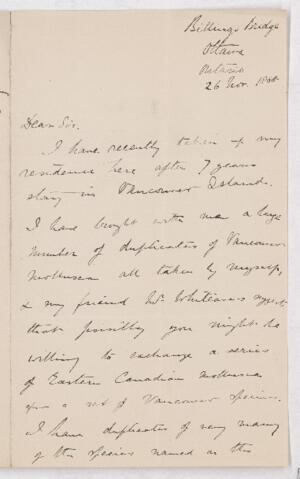 Billings Bridge
Ottawa
Ontario
26 Nov.
Dear Sir,
I have recently taken up my
residence here after 7 years
stay in Vancouver Island.
I have brought with me a large
number of duplicates of Vancouver
mollusca all taken by myself,
& my friend Mr. Whiteaves suggests
that possibly you might be
willing to exchange a series
of Eastern Canadian mollusca
for a set of Vancouver species.
I have duplicates of very many
of the species named in the